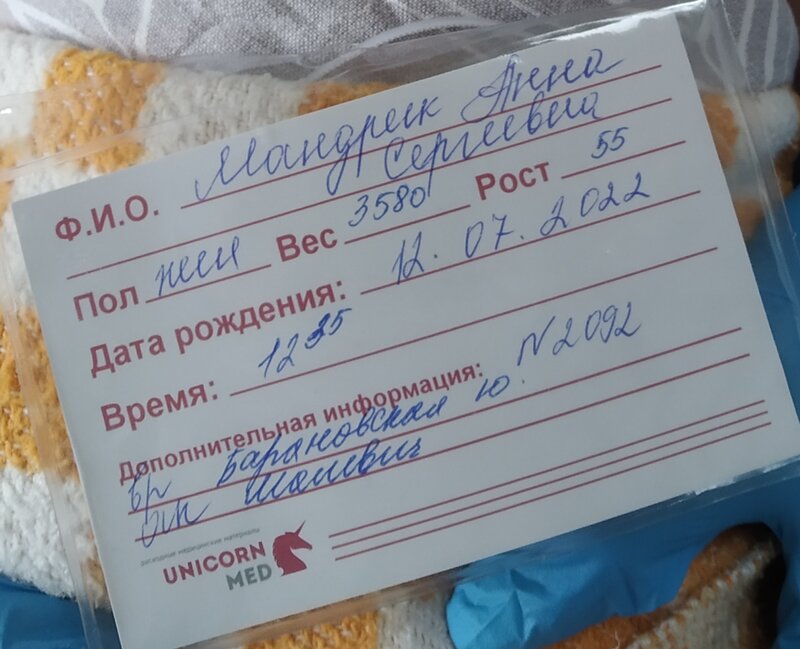 Ф.И.О. Мандрик Анна
Сергеевна
Пол жен Вес 3580 Рост 55
Дата рождения: 12. 07. 2022
Время: 12 35
Дополнительная информация: N 2092
вр Барановская Ю.
Шалевич
расходные медицинские материалы
UNICORN
MED